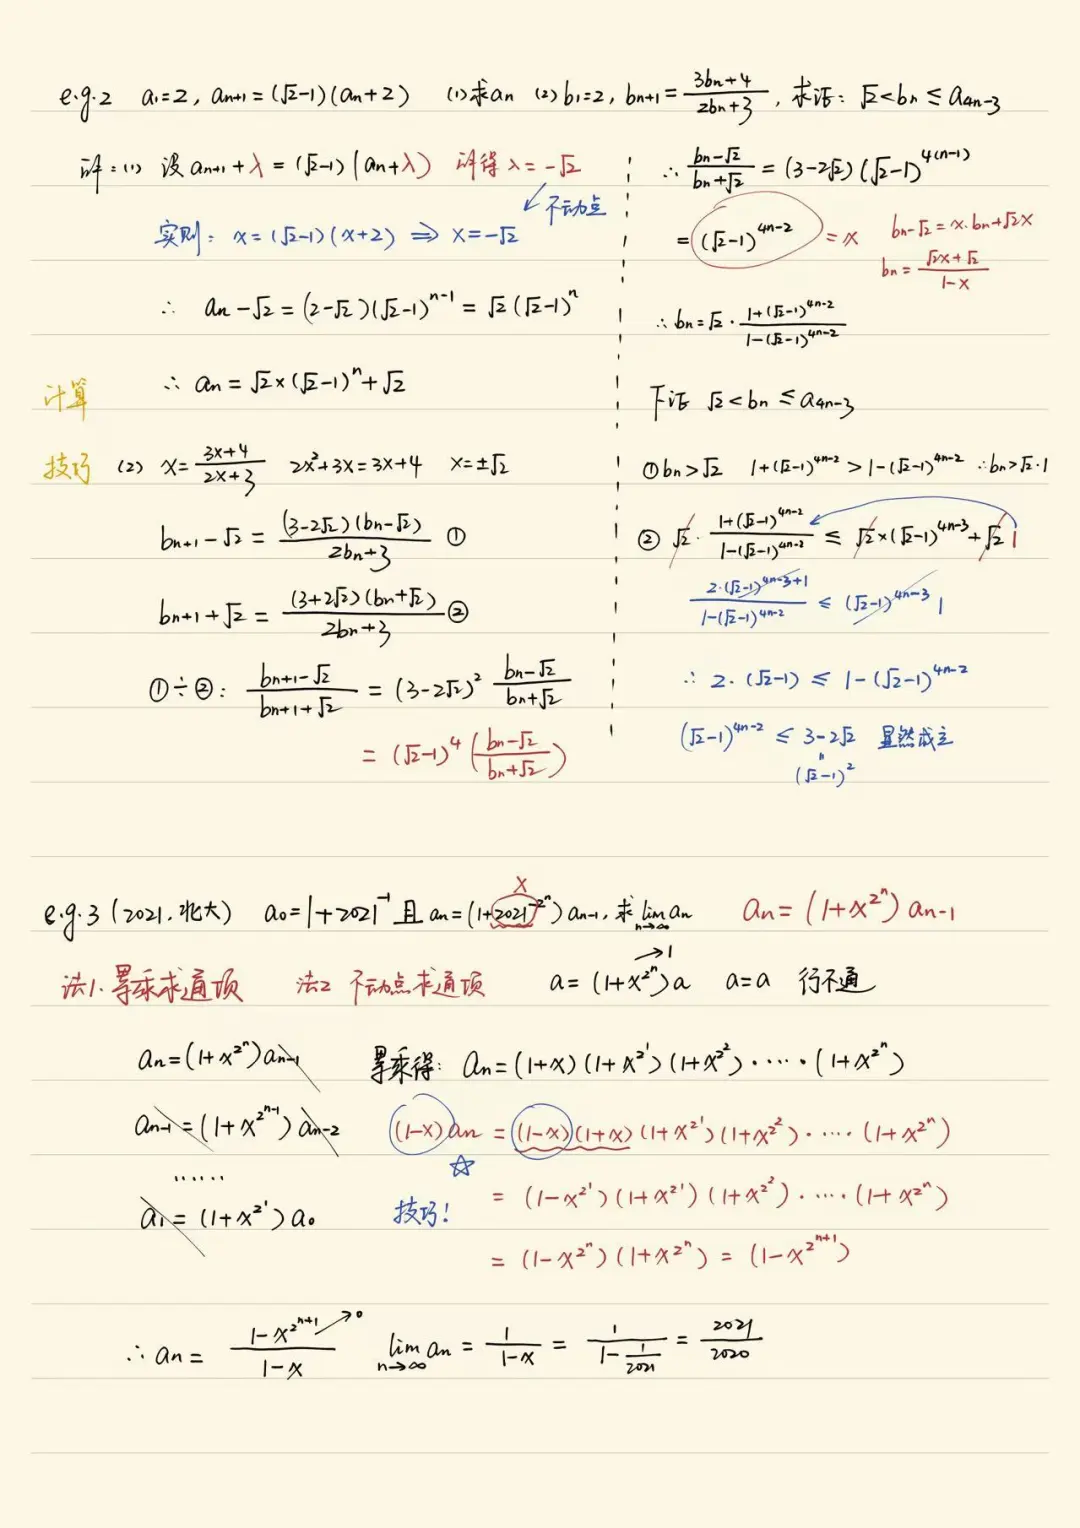 e.g.2 a₁=2, aₙ₊₁=(√2-1)(aₙ+2) (1)求aₙ (2)b₁=2, bₙ₊₁=(3bₙ+4)/(2bₙ+3), 求证: √2<bₙ≤a₄ₙ₋₃
解:(1) 设aₙ₊₁+λ=(√2-1)(aₙ+λ) 解得λ=-√2
不动点
实则: x=(√2-1)(x+2) ⇒ x=-√2
∴ aₙ-√2=(2-√2)(√2-1)^(n-1)=√2(√2-1)^n
∴ aₙ=√2×(√2-1)^n+√2
计算
技巧
(2) x=(3x+4)/(2x+3) 2x²+3x=3x+4 x=±√2
bₙ₊₁-√2=(3-2√2)(bₙ-√2)/(2bₙ+3) ①
bₙ₊₁+√2=(3+2√2)(bₙ+√2)/(2bₙ+3) ②
①÷②: (bₙ₊₁-√2)/(bₙ₊₁+√2)=(3-2√2)² (bₙ-√2)/(bₙ+√2)
=(√2-1)⁴((bₙ-√2)/(bₙ+√2))
∴ (bₙ-√2)/(bₙ+√2)=(3-2√2)(√2-1)^(4(n-1))
=(√2-1)^(4n-2) =x
bₙ-√2=x·bₙ+√2x
bₙ=(√2x+√2)/(1-x)
∴bₙ=√2·(1+(√2-1)^(4n-2))/(1-(√2-1)^(4n-2))
下证 √2<bₙ≤a₄ₙ₋₃
①bₙ>√2 1+(√2-1)^(4n-2)>1-(√2-1)^(4n-2) ∴bₙ>√2·1
② √2·(1+(√2-1)^(4n-2))/(1-(√2-1)^(4n-2)) ≤ √2×(√2-1)^(4n-3)+√2 1
2·(√2-1)^(4n-3+1)/(1-(√2-1)^(4n-2)) ≤ (√2-1)^(4n-3) 1
∴ 2·(√2-1) ≤ 1-(√2-1)^(4n-2)
(√2-1)^(4n-2) ≤ 3-2√2 显然成立
=(√2-1)²
e.g.3 (2021.北大) a₀=1+2021^(-1) 且 aₙ=(1+2021^(-2^n))aₙ₋₁, 求lim(n→∞) aₙ
x
aₙ=(1+x^(2^n))aₙ₋₁
法1.累乘求通项 法2 不动点求通项 a=(1+x^(2^n))a a=a 行不通
→1
aₙ=(1+x^(2^n))aₙ₋₁
aₙ₋₁=(1+x^(2^(n-1)))aₙ₋₂
······
a₁=(1+x^(2^1))a₀
累乘得: aₙ=(1+x)(1+x^(2^1))(1+x^(2^2))·····(1+x^(2^n))
(1-x)aₙ=(1-x)(1+x)(1+x^(2^1))(1+x^(2^2))·····(1+x^(2^n))
☆
技巧!
=(1-x^(2^1))(1+x^(2^1))(1+x^(2^2))·····(1+x^(2^n))
=(1-x^(2^n))(1+x^(2^n))=(1-x^(2^(n+1)))
∴ aₙ=(1-x^(2^(n+1)))/(1-x) →0 lim(n→∞) aₙ=1/(1-x)=1/(1-1/2021)=2021/2020